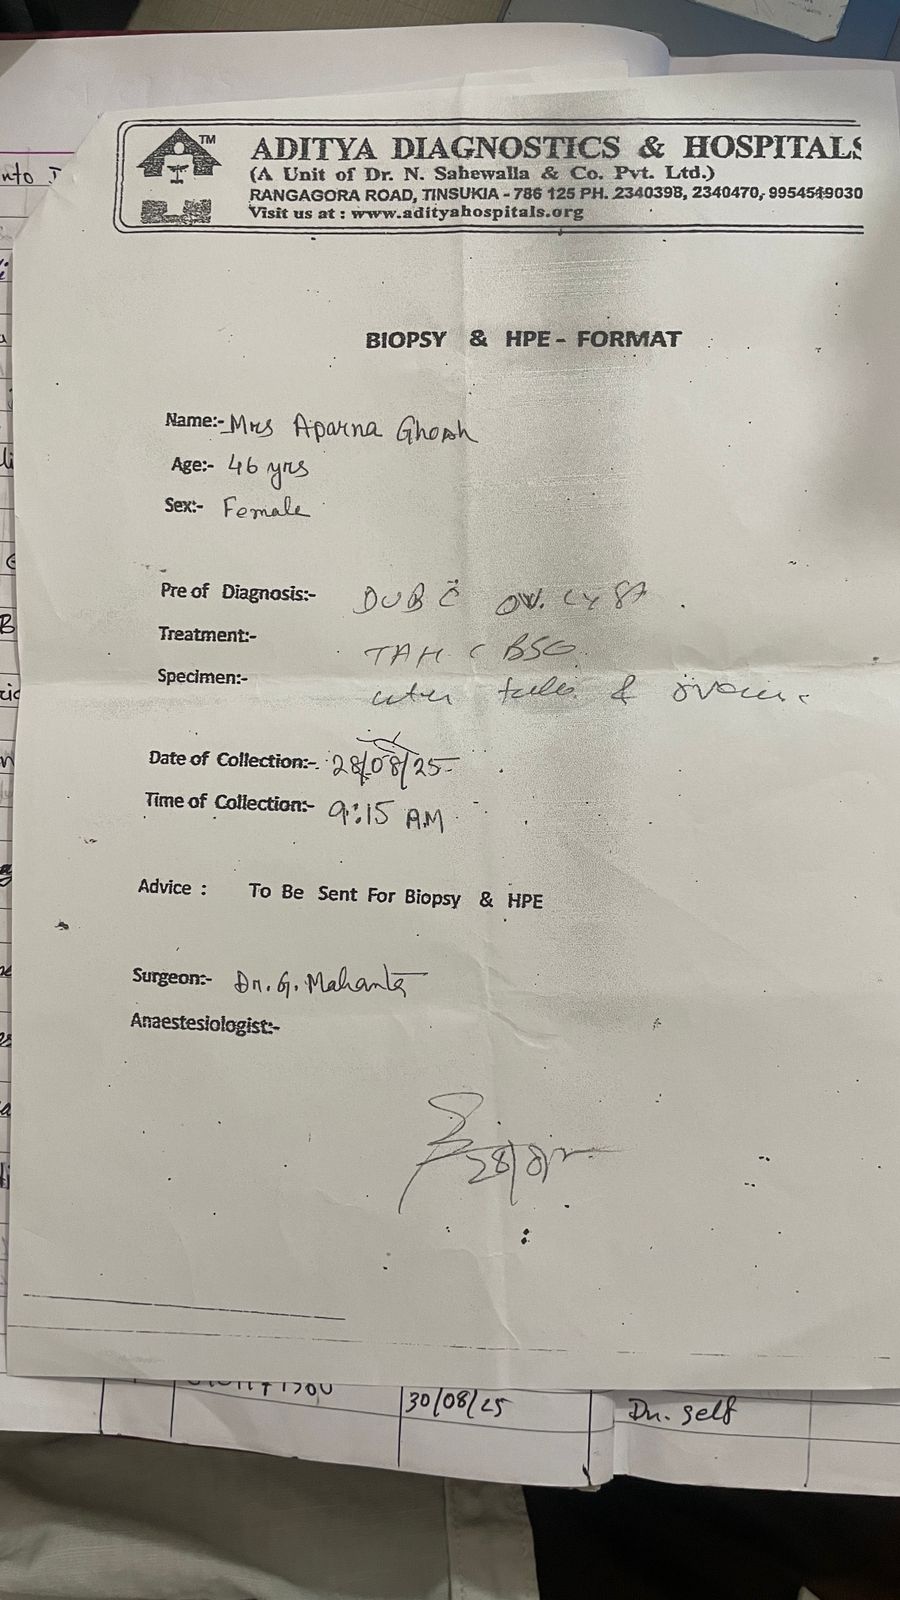 TM
ADITYA DIAGNOSTICS & HOSPITALS
(A Unit of Dr. N. Sahewalla & Co. Pvt. Ltd.)
RANGAGORA ROAD, TINSUKIA - 786 125 PH. 2340398, 2340470, 9954519030
Visit us at : www.adityahospitals.org
BIOPSY & HPE - FORMAT
Name:- Mrs Aparna Ghosh
Age:- 46 yrs
Sex:- Female
Pre of Diagnosis:- DUB c̄ ov. cyst
Treatment:- TAH c BSO
Specimen:- & 
Date of Collection:- 28/08/25
Time of Collection:- 9:15 AM
Advice : To Be Sent For Biopsy & HPE
Surgeon:- Dr. G. Mahanta
Anaestesiologist:-
30/08/25 Dr. self